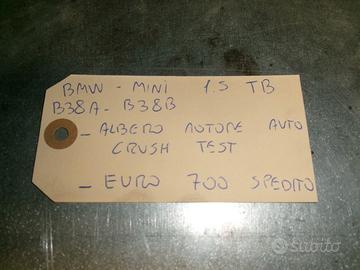 BMW - MINI 1.5 TB
B38A - B38B
- ALBERO MOTORE AVTO
CRUSH TEST
- EURO 700 SPEDITO
subito